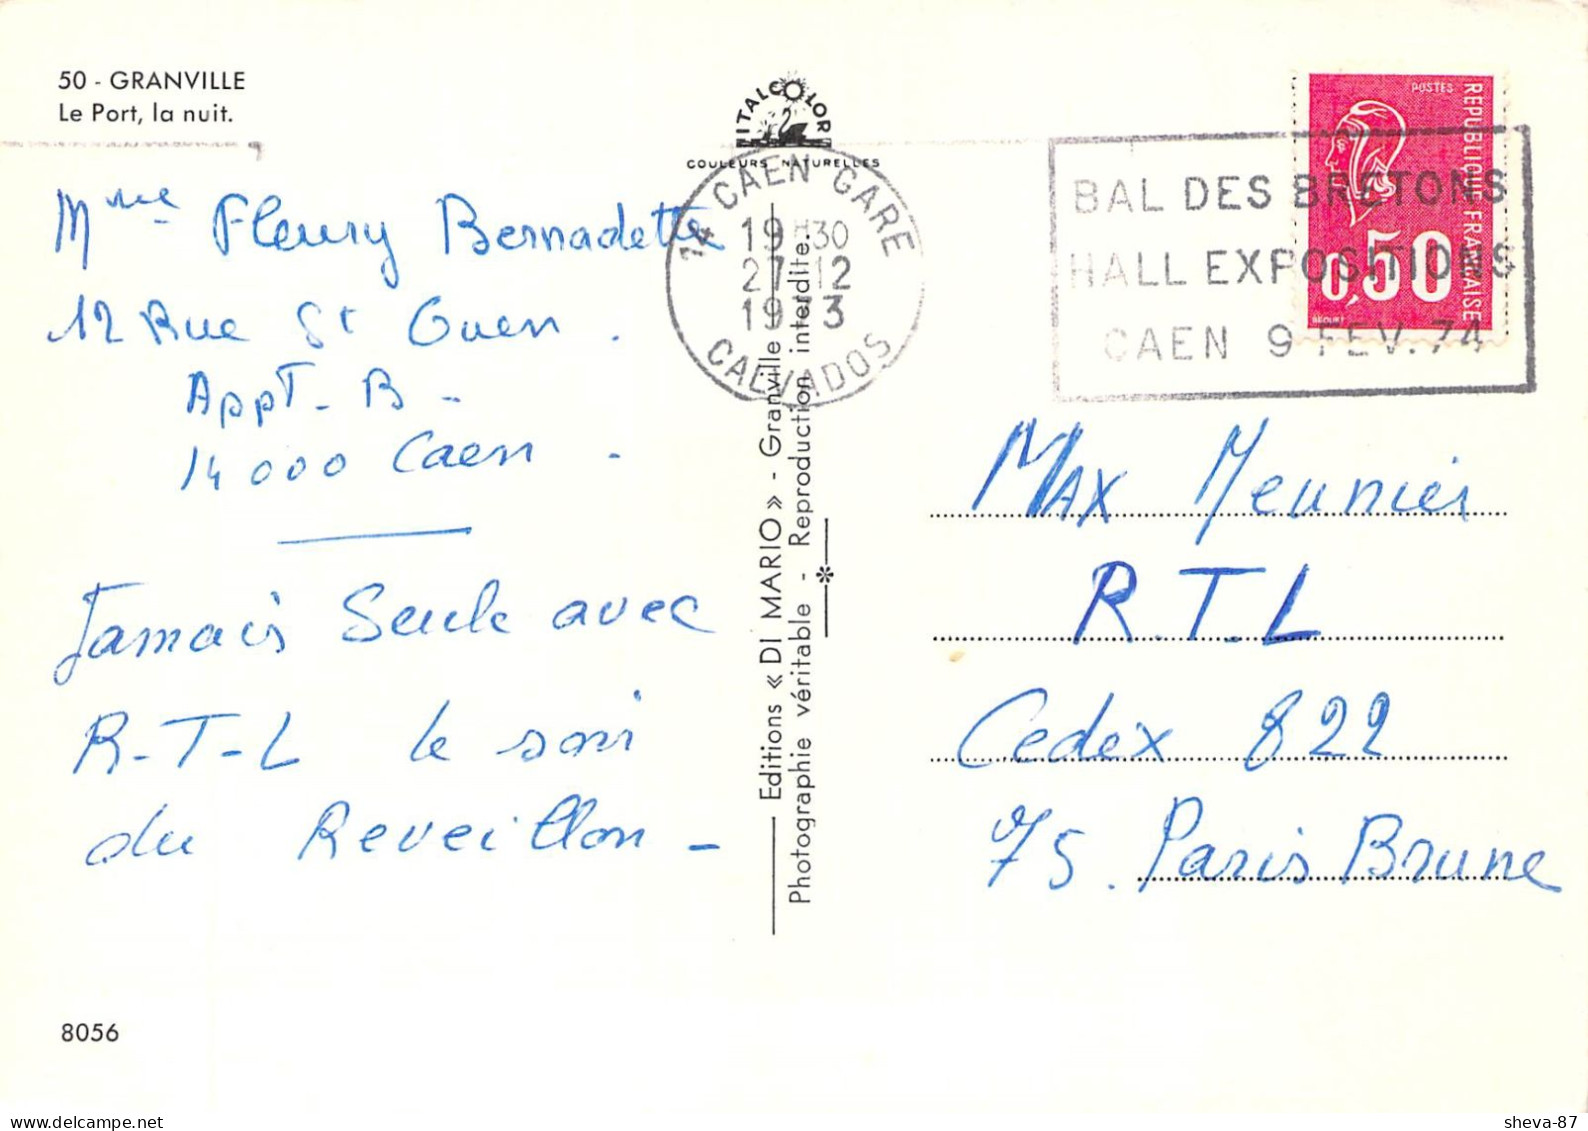 50 - GRANVILLE
Le Port, la nuit.
ITALCOLOR
COULEURS NATURELLES
14 CAEN GARE
19H30
27-12
19 3
CALVADOS
BAL DES BRETONS
HALL EXPOSITIONS
CAEN 9 FEV. 74
POSTES
REPUBLIQUE FRANÇAISE
0,50
BEQUET
Mme Fleury Bernadette
12 Rue St Ouen.
AppT - B -
14000 Caen.
Jamais Seule avec
R-T-L le soir
du Reveillon -
Editions « DI MARIO » - Granville
Photographie véritable - Reproduction interdite.
MAX Meunier
R.T.L
Cedex 822
75. Paris Brune
8056
sheva-87